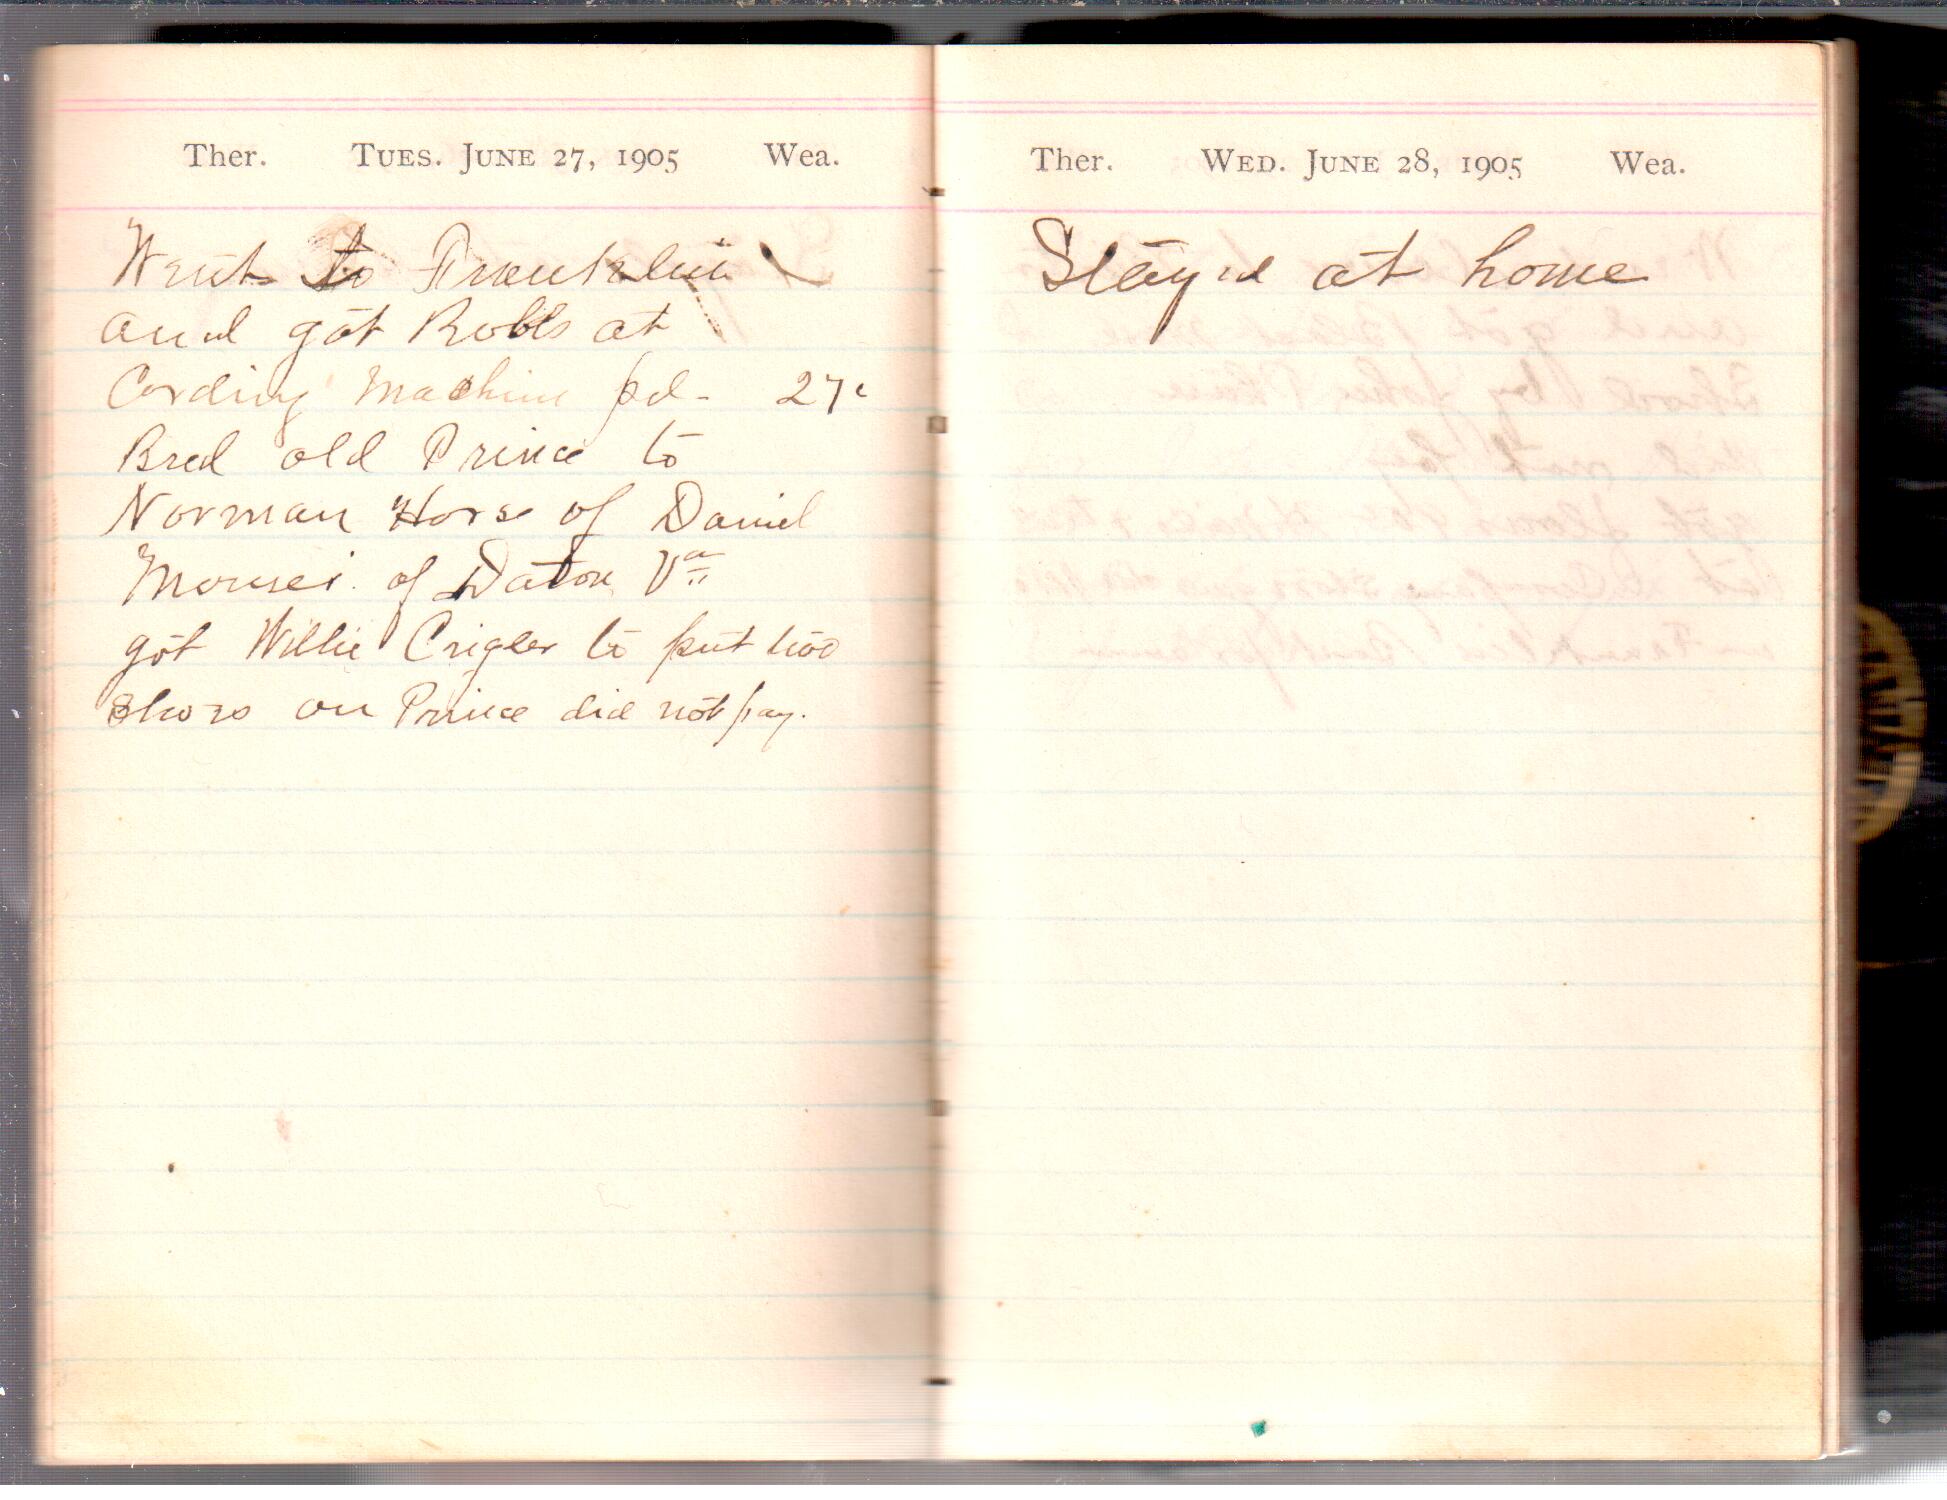 Ther. Tues. June 27, 1905 Wea.
Went to Franklin
and got Rolls at
Cording Machine pd- 27c
Bred old Prince to
Norman Horse of Daniel
of Daton Va
got Willie Crigler to put two
Shoes on Prince did not pay.
Ther. Wed. June 28, 1905 Wea.
Stayed at home